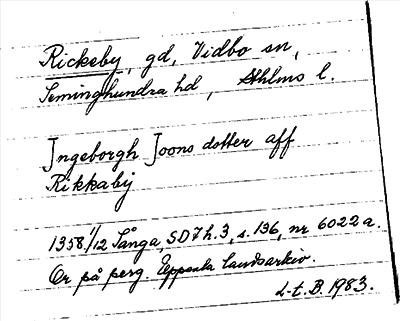 Rickeby, gd, Vidbo sn,
Seminghundra hd, Sthlms l.
Ingeborgh Joons dotter aff
Rikkaby
1358 1/12 Långa, SD 7 h. 3, s. 136, nr 6022 a.
Or på perg. Uppsala landsarkiv.
L-t. B. 1983.